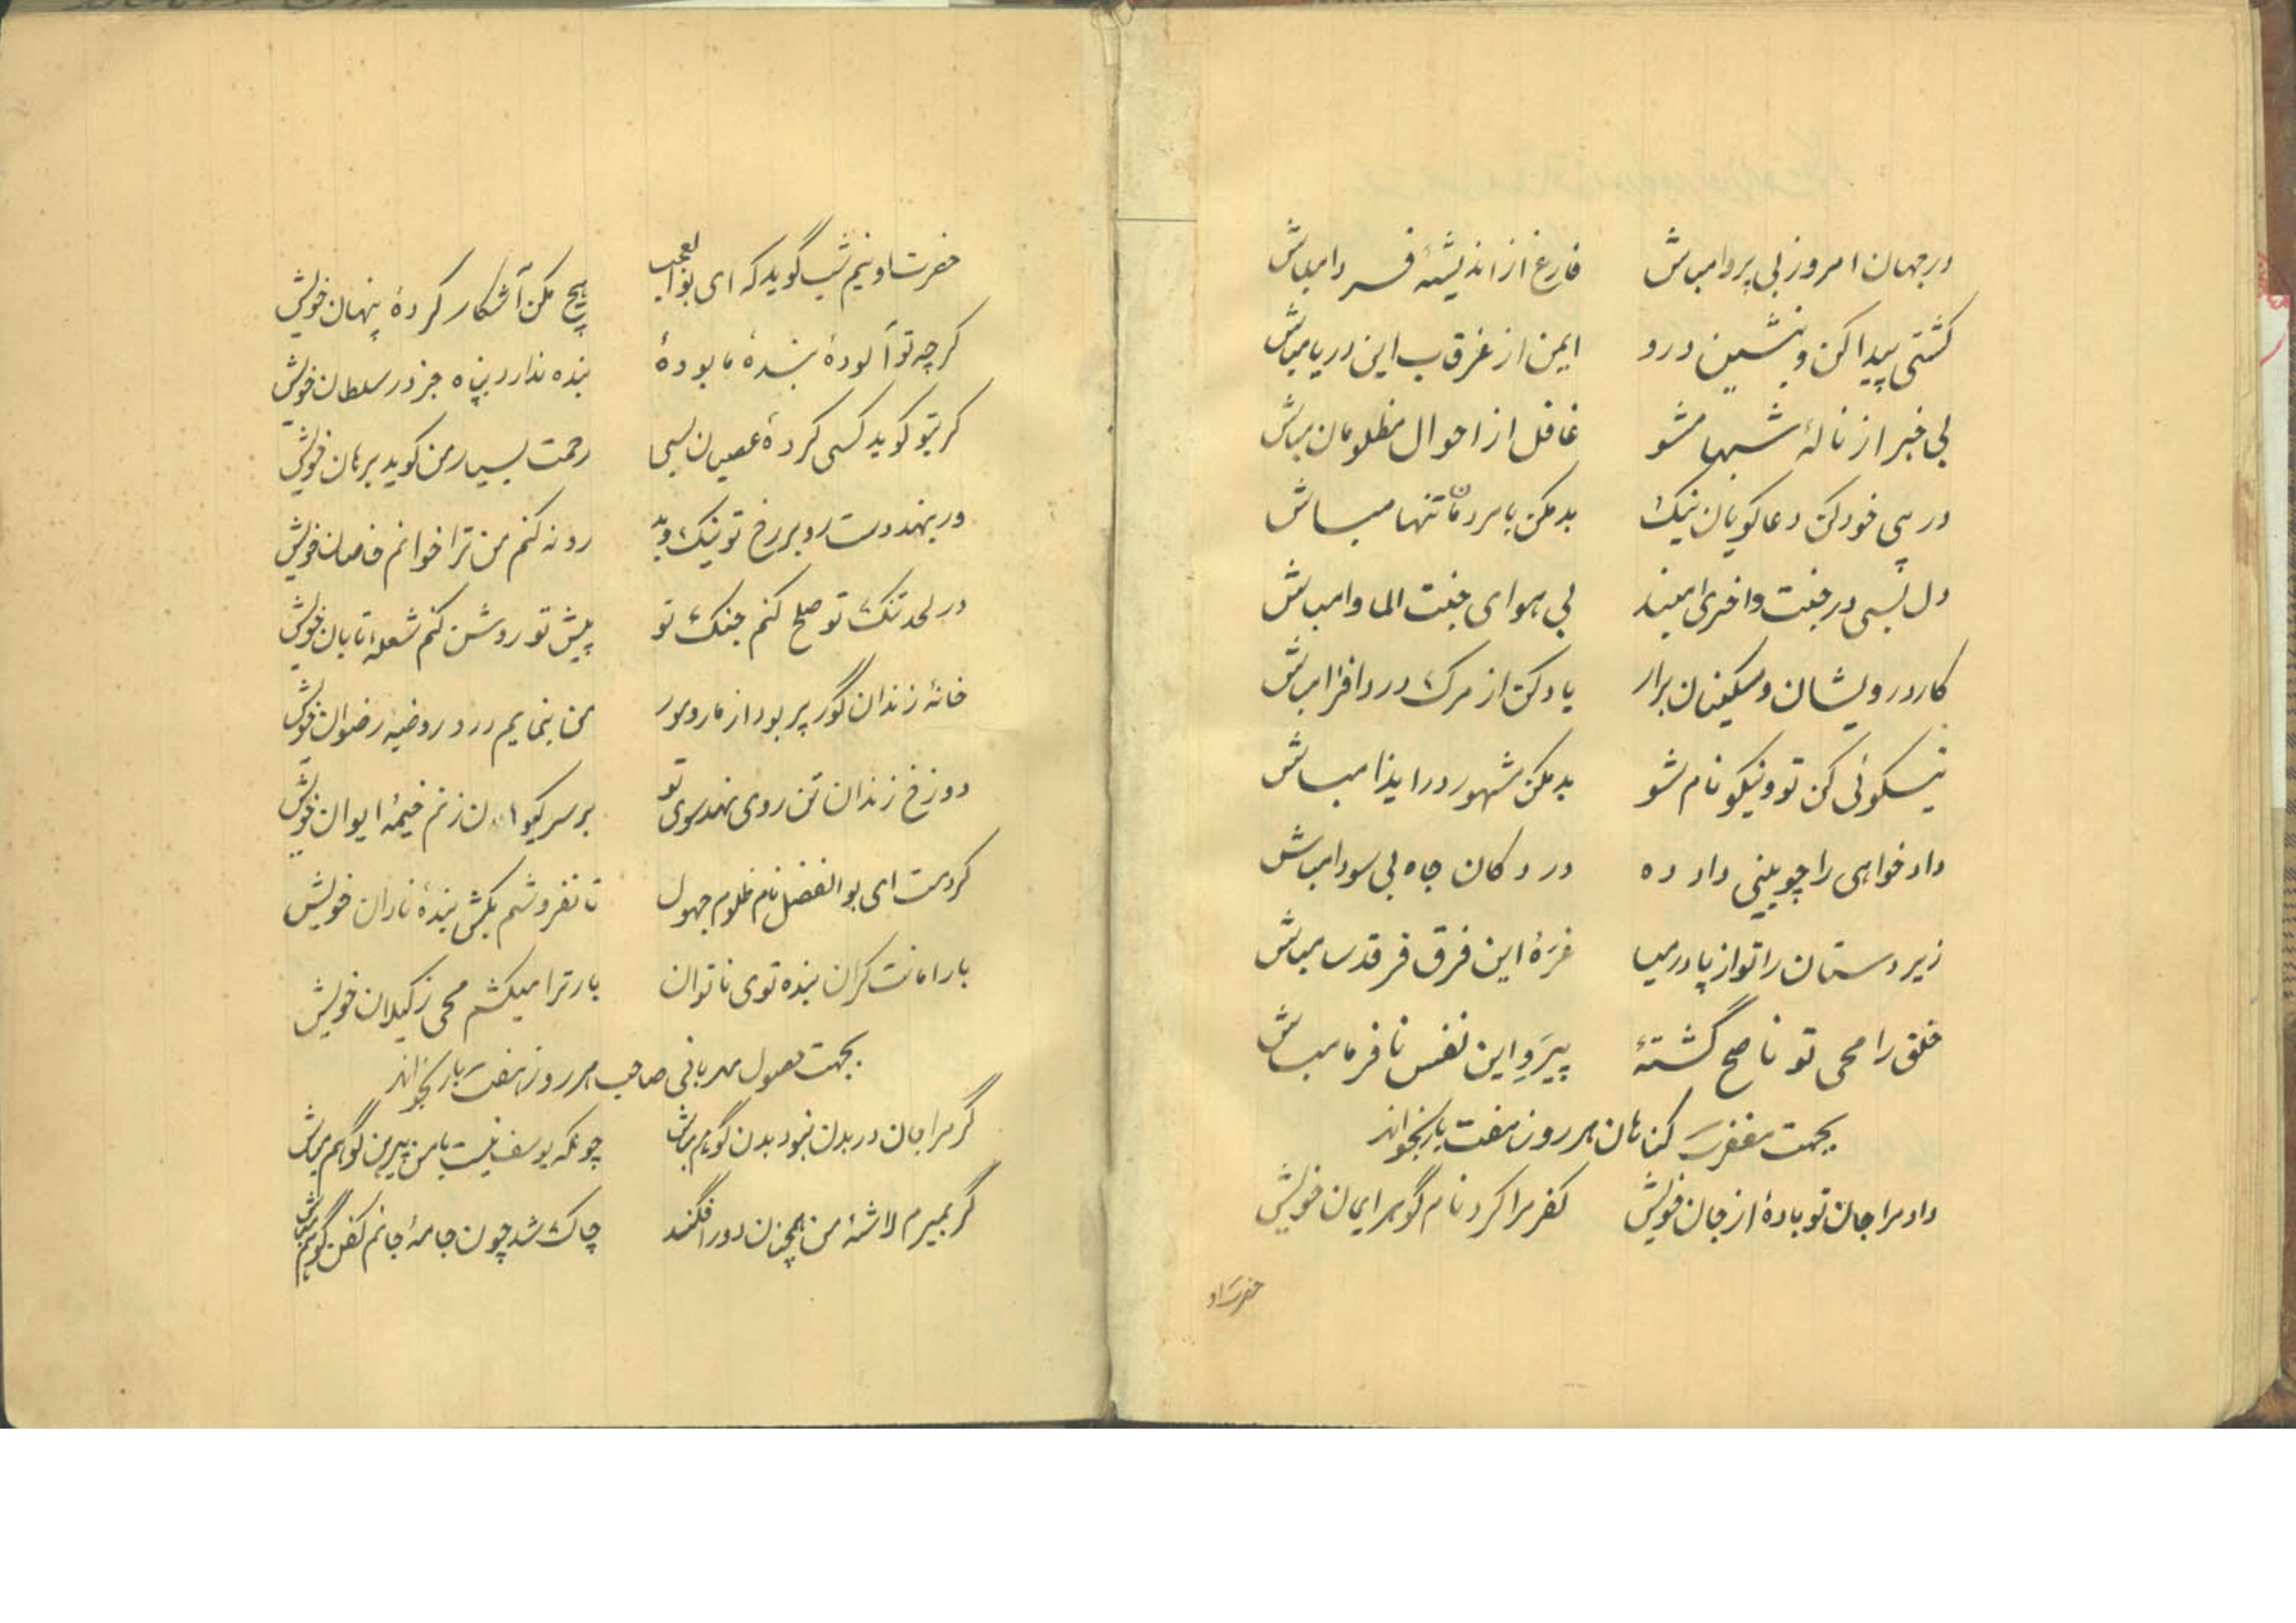 درجهان امروز بی پروا مباش فارغ از اندیشهٔ فردا مباش
کشتی پیدا کن و بنشین درو ایمن از غرقاب این دریا مباش
بی خبر از نالهٔ شبها مشو غافل از احوال مظلومان مباش
در پی خود کن دعا کویان نیک بد مکن با مردمان تنها مباش
دل بسی در جنت و اخری مبند بی هوای جنت الماوا مباش
کار درویشان و مسکینان برار یاد کن از مرک درد افزا مباش
نیکوئی کن تو و نیکو نام شو بد مکن مشهور در ایذا مباش
داد خواهی را چو بینی داد ده در دکان جاه بی سودا مباش
زیر دستان را تو از پا در میا غرهٔ این فرق فرقدسا مباش
خلق را محی تو ناصح گشتهٔ پیرَوِ این نفس نافرما مباش
بجهت مغفرت کناهان هر روز هفت بار بخواند
داد مرا جان تو بادهٔ از جان خویش کفر مرا کرد نام گوهر ایمان خویش
حضرت او
حضرت او نیم شب گوید که ای بوالعجب هیچ مکن آشکار کردهٔ پنهان خویش
کرچه تو آلودهٔ بندهٔ ما بودهٔ بنده ندارد پناه جز در سلطان خویش
کر بتو کوید کسی کردهٔ عصیان بسی رحمت بسیار من کوید برهان خویش
ور بنهد دست رد بر رخ تو نیک و بد رد نه کنم من ترا خوانم خاصان خویش
در لحد تنک تو صلح کنم جنک تو پیش تو روشن کنم شعلهٔ تابان خویش
خانهٔ زندان گور پر بود از مار و مور من بنمایم درد روضهٔ رضوان خویش
دوزخ زندان تن روی نهد سوی تو بر سر کیوان زنم خیمهٔ ایوان خویش
کردمت ای بوالفضل نام ظلوم جهول تا نفروشم بکش بندهٔ نادان خویش
بار امانت کران بنده توی ناتوان بار ترا میکشم محی ز کیلان خویش
بجهت حصول مهربانی صاحب هر روز هفت بار بخواند
گر مرا جان در بدن نبود بدن گو هم مباش چونکه یوسف نیست با من پیرهن گو هم مباش
گر بمیرم لاشهٔ من همچنان دور افکنند چاک شد چون جامهٔ جانم کفن گو هم مباش